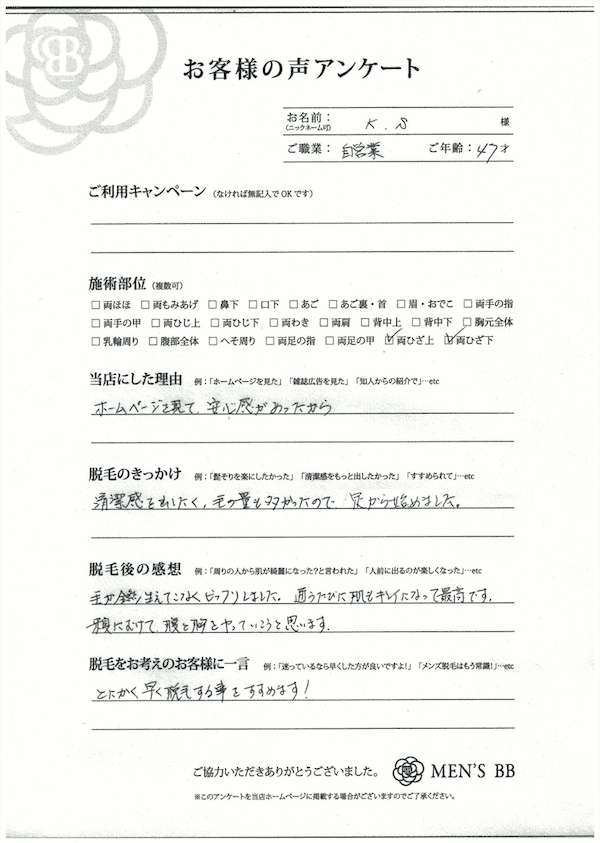 BB
お客様の声アンケート
お名前：
(ニックネーム可)
K.S 様
ご職業： 自営業 ご年齢：47才
ご利用キャンペーン（なければ無記入でOKです）
施術部位（複数可）
□両ほほ □両もみあげ □鼻下 □口下 □あご □あご裏・首 □眉・おでこ □両手の指
□両手の甲 □両ひじ上 □両ひじ下 □両わき □両肩 □背中上 □背中下 □胸元全体
□乳輪周り □腹部全体 □へそ周り □両足の指 □両足の甲 ☑両ひざ上 ☑両ひざ下
当店にした理由 例：「ホームページを見た」「雑誌広告を見た」「知人からの紹介で」…etc
ホームページを見て、安心感があったから
脱毛のきっかけ 例：「髭そりを楽にしたかった」「清潔感をもっと出したかった」「すすめられて」…etc
清潔感を出したく、毛の量も多かったので、足から始めました。
脱毛後の感想 例：「周りの人から肌が綺麗になった？と言われた」「人前に出るのが楽しくなった」…etc
毛が全然生えてこなくビックリしました。通うたびに肌もキレイになって最高です。
夏にむけて、腹と胸をやっていこうと思います。
脱毛をお考えのお客様に一言 例：「迷っているなら早くした方が良いですよ！」「メンズ脱毛はもう常識！」…etc
とにかく早く脱毛する事をすすめます！
ご協力いただきありがとうございました。 MEN'S BB
※このアンケートを当店ホームページに掲載する場合がございますのでご了承ください。